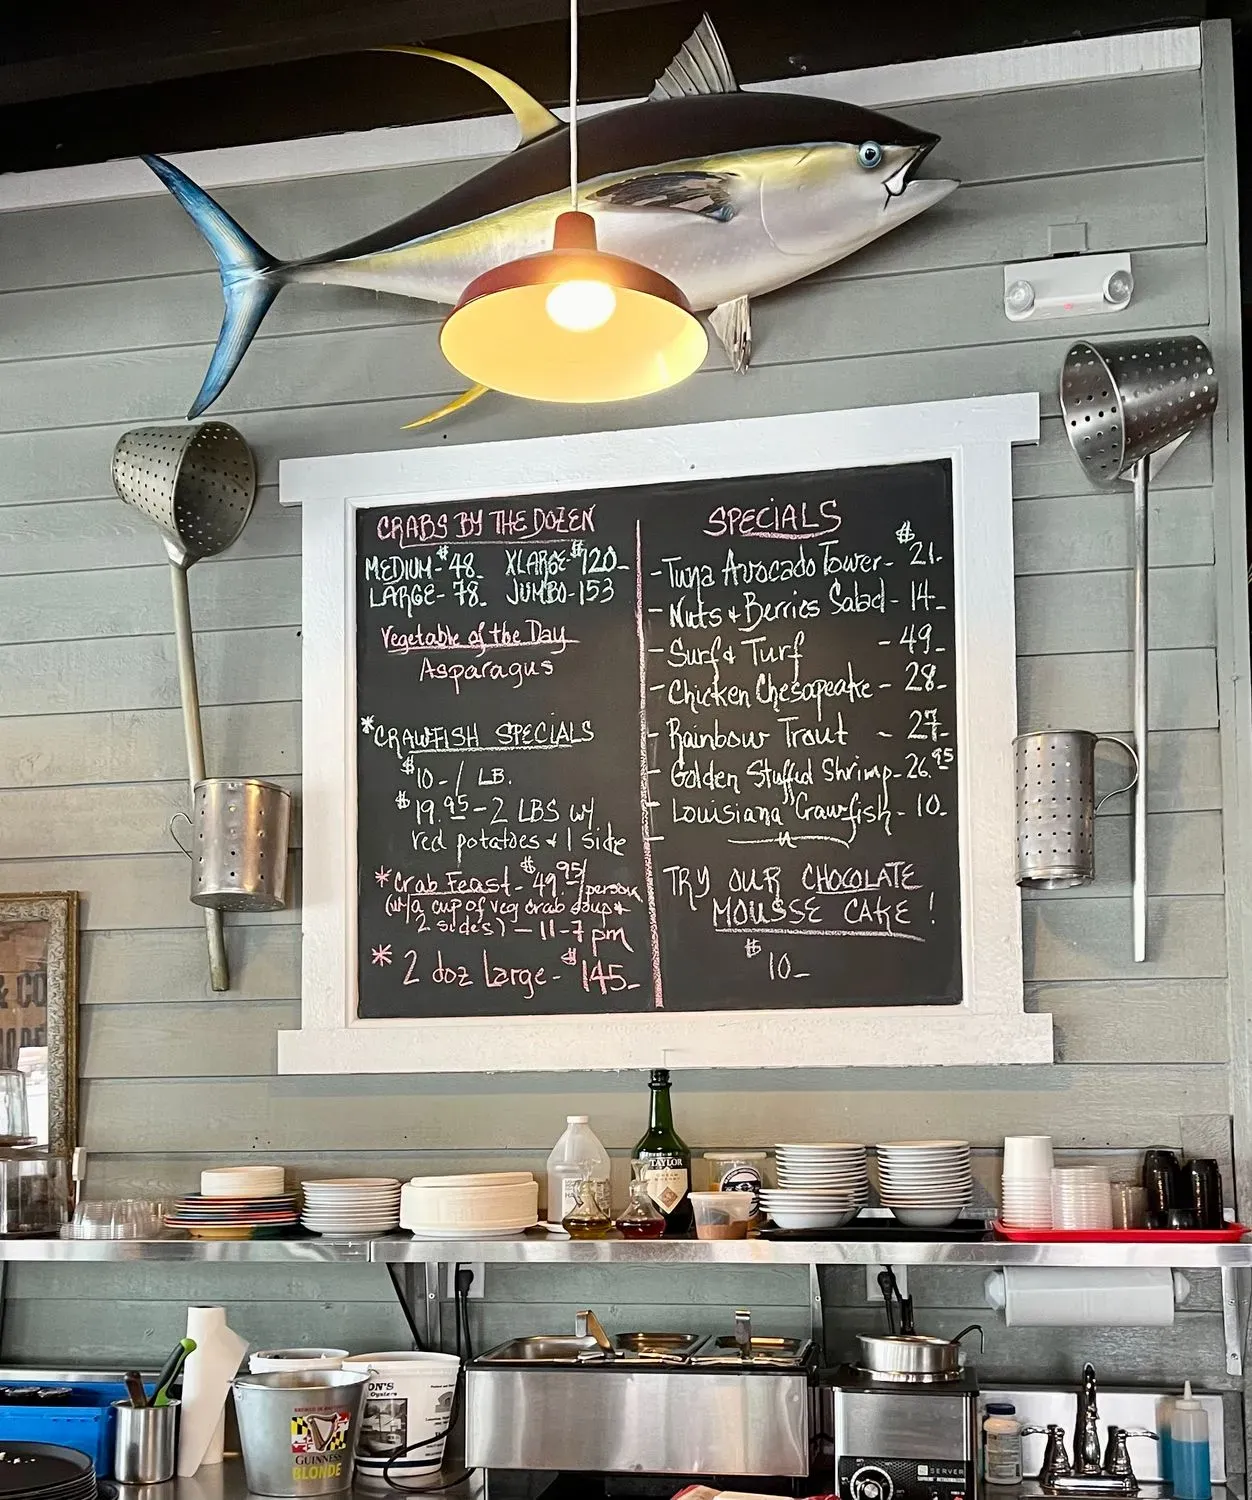 CRABS BY THE DOZEN
MEDIUM-$48- XLARGE-$120-
LARGE- 78- JUMBO-153
Vegetable of the Day
Asparagus
*CRAWFISH SPECIALS
$10-/ LB.
$19.95-2 LBS w/
red potatoes + 1 side
*Crab Feast-$49.95/person
(w/a cup of veg crab soup +
2 sides) - 11-7pm
* 2 doz Large-$145-
SPECIALS
-Tuna Avocado Tower- $21-
-Nuts + Berries Salad- 14-
-Surf & Turf - 49-
-Chicken Chesapeake- 28-
-Rainbow Trout - 27-
-Golden Stuffed Shrimp-26.95
-Louisiana Crawfish- 10-
-
TRY OUR CHOCOLATE
MOUSSE CAKE!
$10-
& CO
TAYLOR
CREAM
ON'S
Oysters
GUINNESS
BLONDE
SERVER